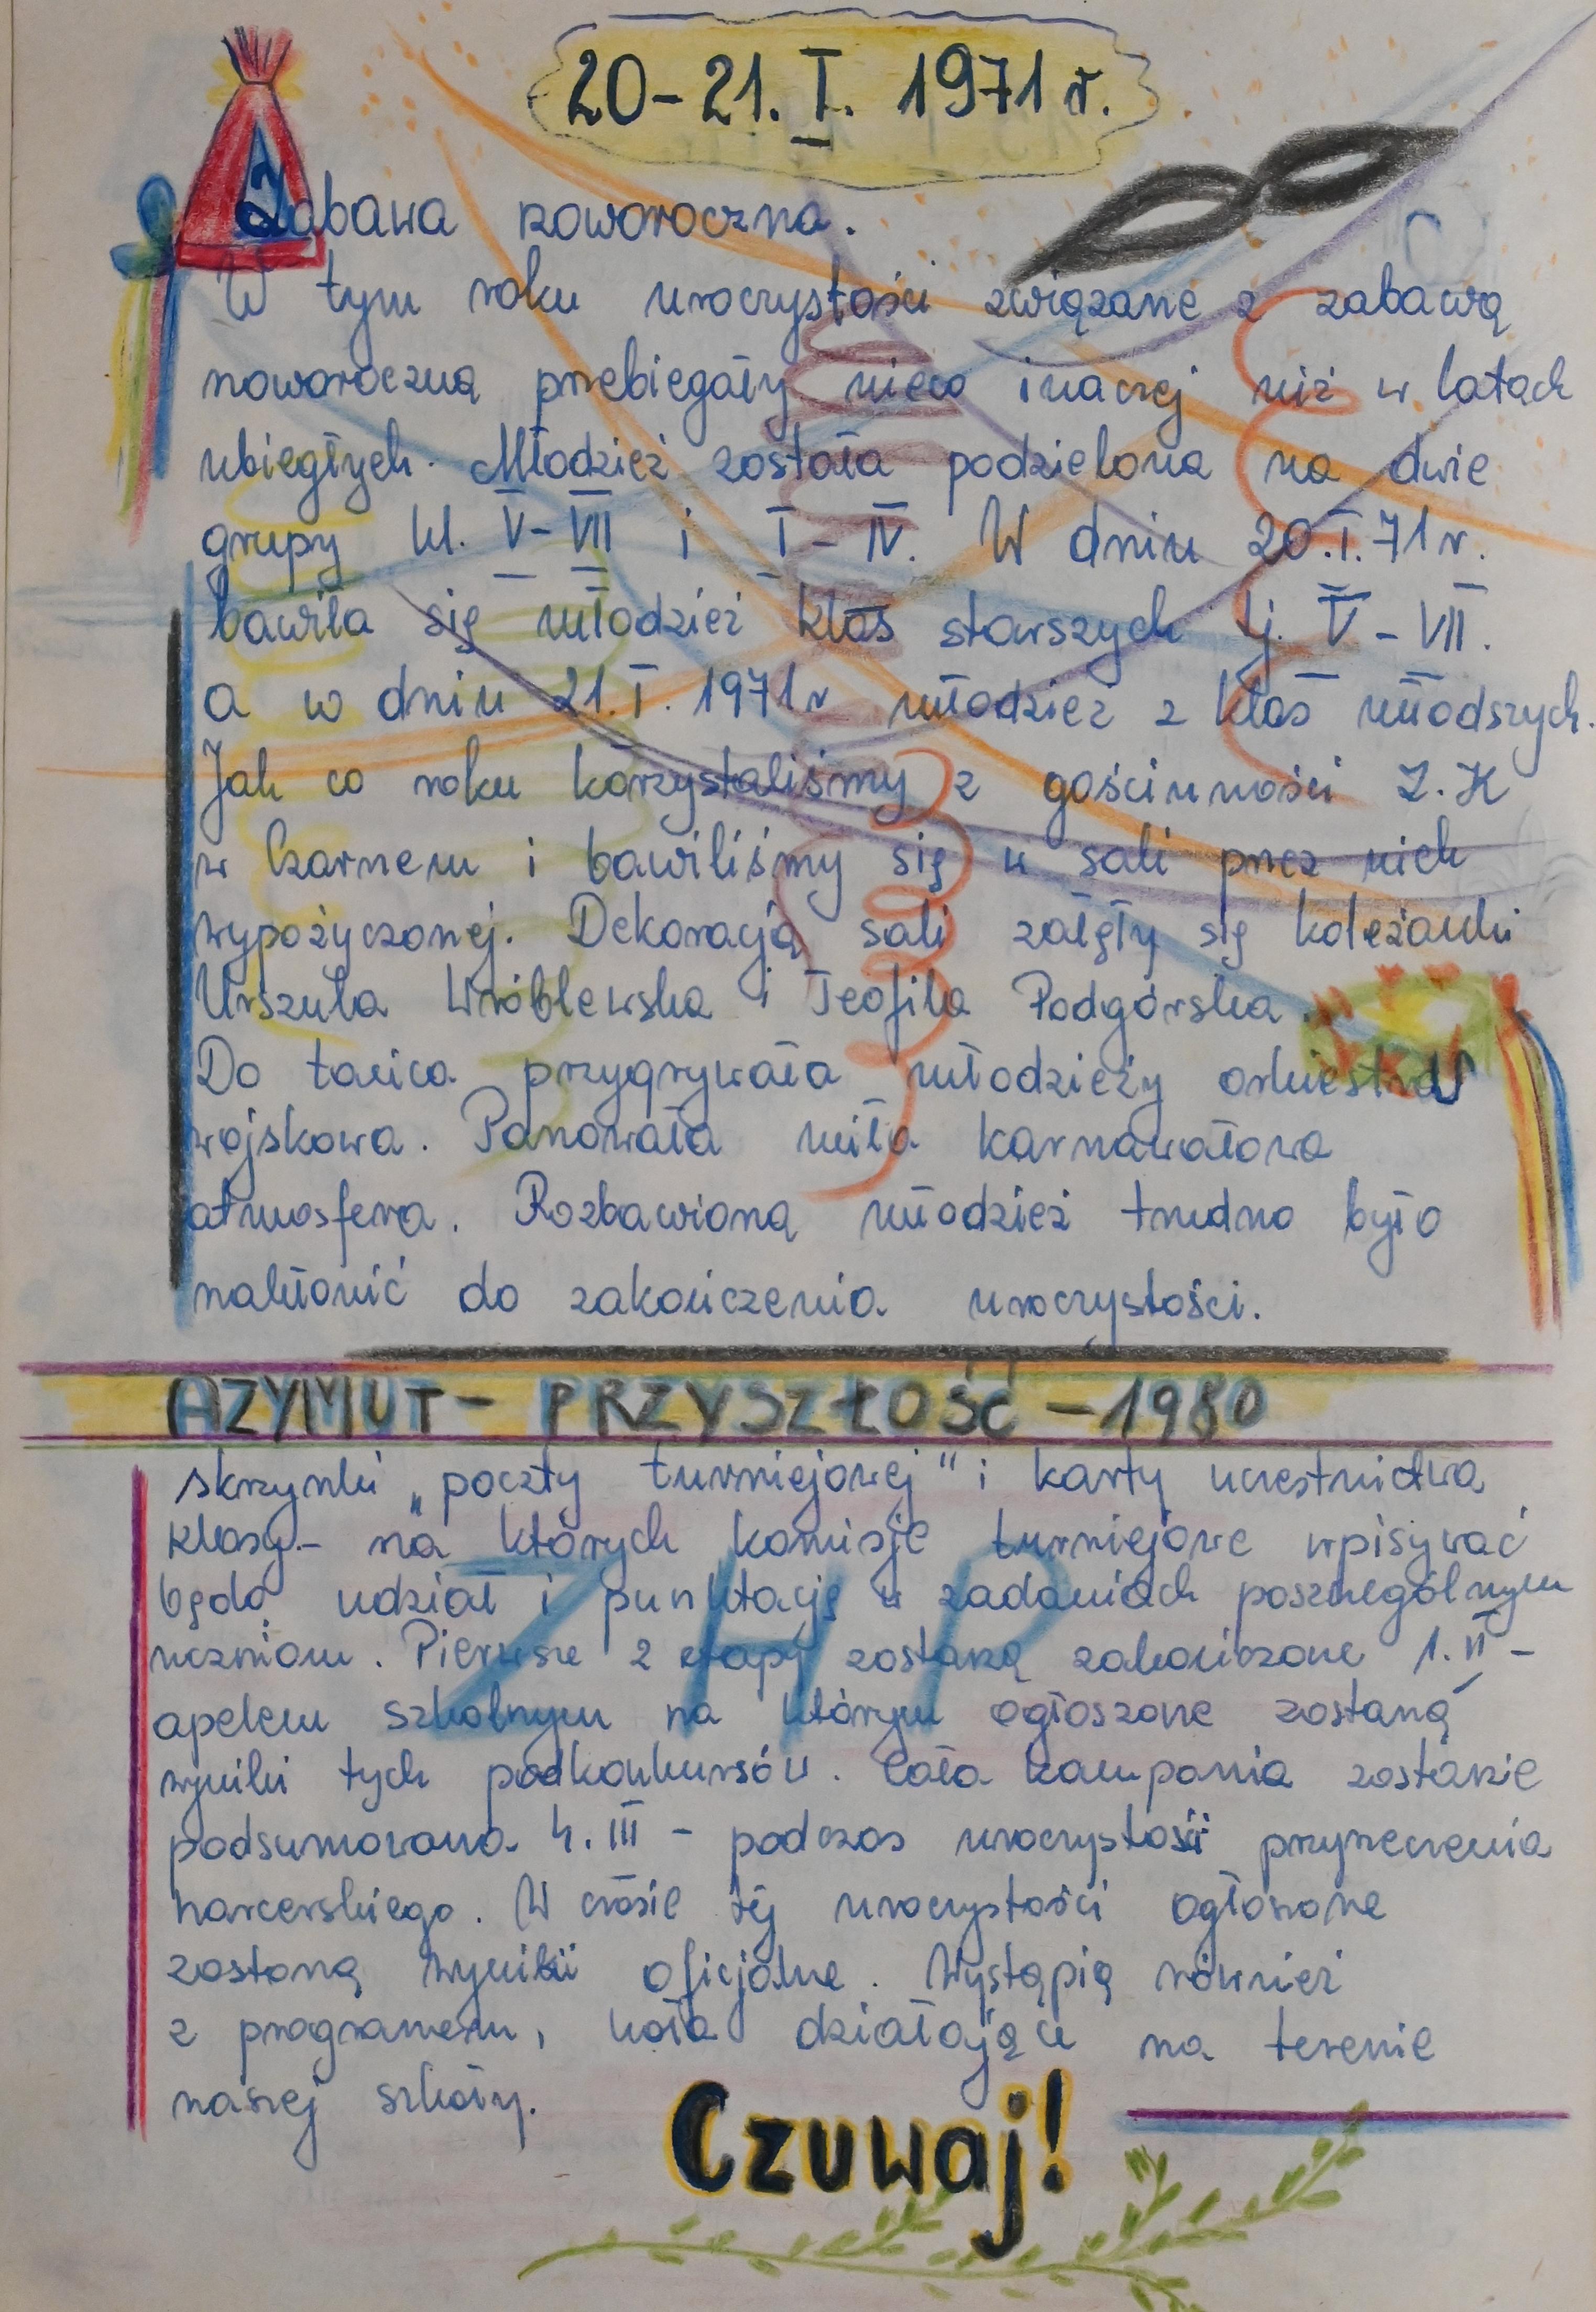 20-21. I. 1971 r.
Zabawa noworoczna.
W tym roku uroczystości związane z zabawą
noworoczną przebiegały nieco inaczej niż w latach
ubiegłych. Młodzież została podzielona na dwie
grupy kl. V-VII i I-IV. W dniu 20.I.71r.
bawiła się młodzież klas starszych tj. V-VII.
a w dniu 21.I.1971r młodzież z klas młodszych.
Jak co roku korzystaliśmy z gościnności Z.K
w Czarnem i bawiliśmy się w sali przez nich
wypożyczonej. Dekoracją sali zajęły się koleżanki
Urszula Wróblewska i Teofila Podgórska.
Do tańca przygrywała młodzieży orkiestra
wojskowa. Panowała miła karnawałowa
atmosfera. Rozbawioną młodzież trudno było
nakłonić do zakończenia uroczystości.
AZYMUT - PRZYSZŁOŚĆ - 1980
skrzynki „poczty turniejowej" i karty uczestnictwa
klasy - na których komisje turniejowe wpisywać
będą udział i punktację w zadaniach poszczególnym
uczniom. Pierwsze 2 etapy zostaną zakończone 1.II -
apelem szkolnym na którym ogłoszone zostaną
wyniki tych podkonkursów. Cała kampania zostanie
podsumowana 4.III - podczas uroczystości przyrzeczenia
harcerskiego. W czasie tej uroczystości ogłoszone
zostaną wyniki oficjalne. Wystąpią również
z programem, koła działające na terenie
naszej szkoły.
ZHP
Czuwaj!